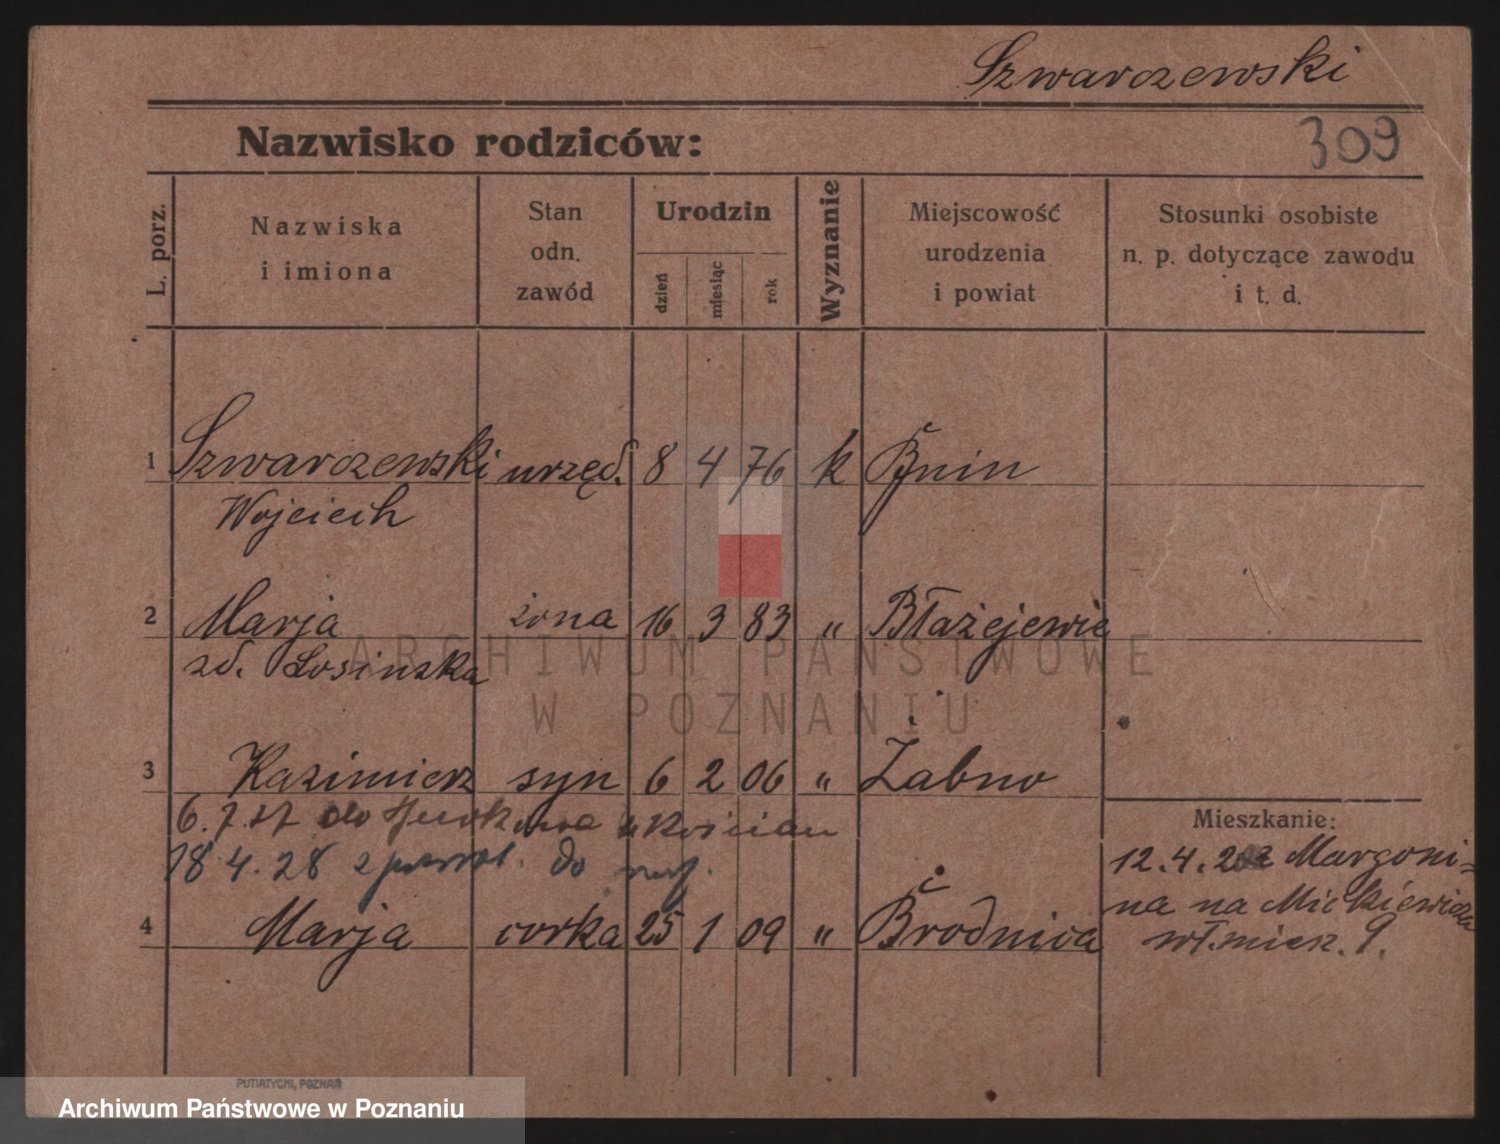 Szwarczewski
Nazwisko rodziców:
309
L. porz.
Nazwiska
i imiona
Stan
odn.
zawód
Urodzin
dzień
miesiąc
rok
Wyznanie
Miejscowość
urodzenia
i powiat
Stosunki osobiste
n. p. dotyczące zawodu
i t. d.
1 Szwarczewski urzęd. 8 4 76 k Bnin
Wojciech
2 Marja żona 16 3 83 " Błażejewie
zd. Łosinska
3 Kazimierz syn 6 2 06 " Żabno
6.7.27 do Kościan
18 4.28 z powrot. do
4 Marja corka 25 1 09 " Brodnica
Mieszkanie:
12.4.2 z Margoni-
na na Mickiewicza
wł. miesz. 9.
ARCHIWUM PAŃSTWOWE
W POZNANIU
PUTIATYCKI, POZNAŃ
Archiwum Państwowe w Poznaniu